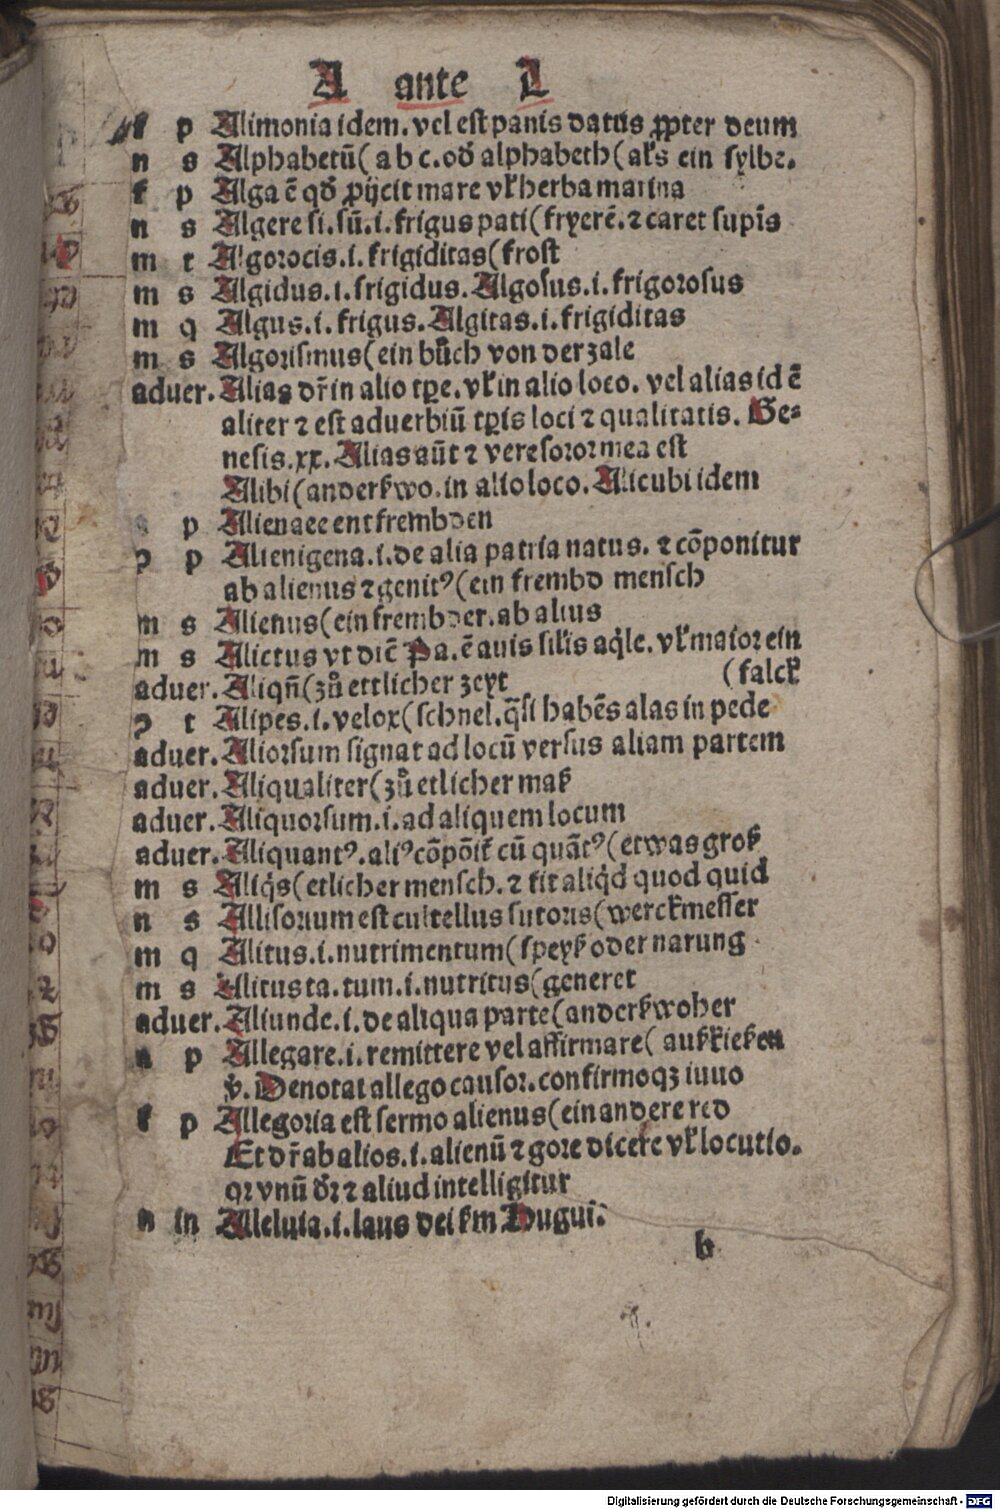 A ante L
f p Alimonia idem. vel est panis datus ꝓpter deum
n s Alphabetū ( a b c. ođ alphabeth ( als ein sylbe.
f p Alga ē qđ ꝓijcit mare vł herba marina
n s Algere si. sū. i. frigus pati ( fryerē. ⁊ caret supīs
m t Algor ocis. i. frigiditas ( frost
m s Algidus. i. frigidus. Algosus. i. frigorosus
m q Algus. i. frigus. Algitas. i. frigiditas
m s Algorismus ( ein bůch von der zale
aduer. Alias dr̄ in alio tꝑe. vł in alio loco. vel alias id ē
aliter ⁊ est aduerbiū tꝑis loci ⁊ qualitatis. Ge⸗
nesis. xx. Alias aūt ⁊ vere soror mea est
Alibi ( anderßwo. in alio loco. Alicubi idem
p Alienare entfrembden
ꝯ p Alienigena. i. de alia patria natus. ⁊ cōponitur
ab alienus ⁊ genitꝰ ( ein frembd mensch
m s Alienus ( ein frembder. ab alius
m s Alietus vt dič Pa. ē auis silis aq̇le. vł maior ein
( falck
aduer. Aliqñ ( zů ettlicher zeyt
ꝯ t Alipes. i. velox ( schnel. q̄si habēs alas in pede
aduer. Aliorsum signat ad locū versus aliam partem
aduer. Aliqualiter ( zů etlicher maß
aduer. Aliquorsum. i. ad aliquem locum
aduer. Aliquantꝰ. aliꝰ cōpōit̄ cū quātꝰ ( etwas groß
m s Aliq̇s ( etlicher mensch. ⁊ fit aliq̇d quod quid
n s Allisorium est cultellus sutoris ( werckmesser
m q Alitus. i. nutrimentum ( speyß oder narung
m s Alitus ta. tum. i. nutritus ( generet
aduer. Aliunde. i. de aliqua parte ( anderßwoher
a p Allegare. i. remittere vel affirmare ( außkießen
v̓. Denotat allego causor. confirmoqꝫ iuuo
f p Allegoria est sermo alienus ( ein andere red
Et dr̄ ab alios. i. alienū ⁊ gore dicere vł locutio.
qꝛ vnū dꝛ ⁊ aliud intelligitur
n in Alleluia. i. laus dei ßm Hugui.
b
Digitalisierung gefördert durch die Deutsche Forschungsgemeinschaft - DFG